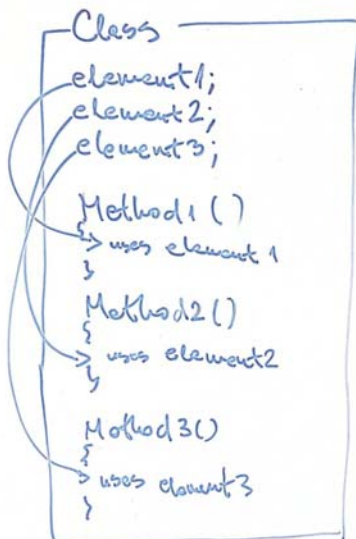 Class
element1;
element2;
element3;
Method1()
{
uses element 1
}
Method2()
{
uses element2
}
Method3()
{
uses element3
}